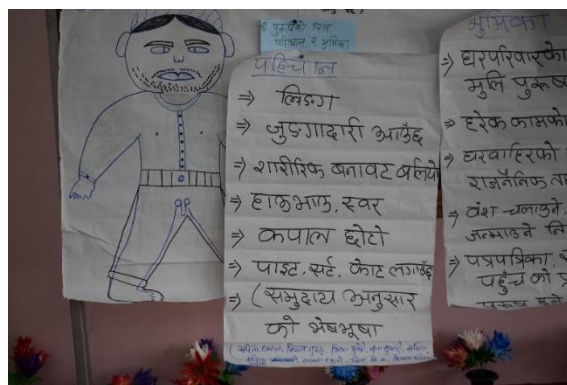 पुरुषको चित्र
पहिचान र भुमिका
पहिचान
⇒ लिङ्ग
⇒ जुङ्गादारी आउँछ
⇒ शारीरिक बनावट बलियो
⇒ हाउभाउ, स्वर
⇒ कपाल छोटो
⇒ पाइट, सर्ट, कोट लगाउँछ
⇒ (समुदाय अनुसार
को भेषभूषा
भुमिका
⇒ घरपरिवारको
मुलि पुरुष
⇒ हरेक कामको
⇒ घरबाहिरको
राजनैतिक
⇒ वंश चलाउने,
जन्माउने
⇒ पत्रपत्रिका,
पहुँच को